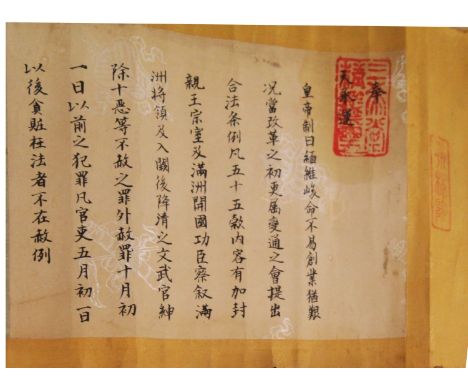 奉
天承運
皇帝制曰緬維峻命不易創業猶艱
况當改革之初更属變通之會提出
合法條例凡五十五款内容有加封
親王宗室及滿洲開國功臣察叙滿
洲將領及入關後降清之文武官紳
除十惡等不赦之罪外赦罪十月初
一日以前之犯罪凡官吏五月初一日
以後貪賍枉法者不在赦例